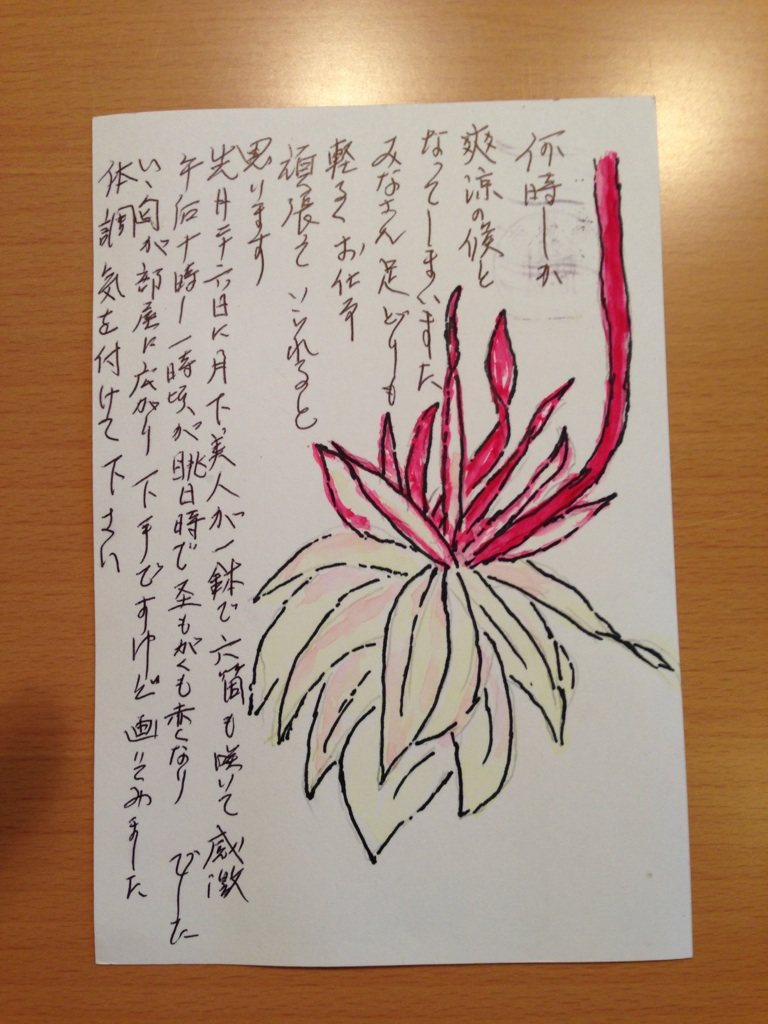 何時しか
爽涼の候と
なってしまいました
みなさん足どりも
軽るくお仕事
頑張っていられると
思ります
先月二十六日に月下美人が一鉢で六箇も咲いて感激
でした
午后十時ー一時頃が時で茎もがくも赤くなり
いゝ匂が部屋に広がり下手ですけど画いてみました
体調気を付けて下さい